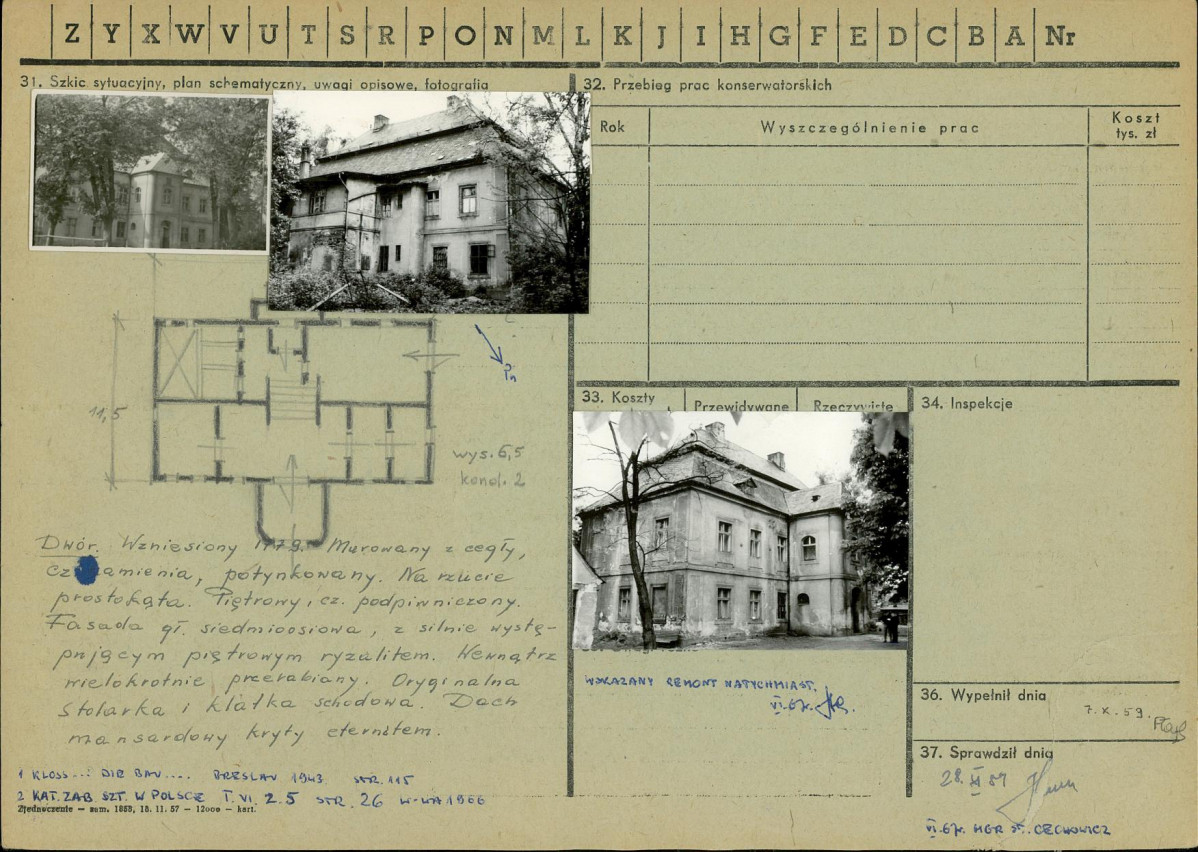 Z Y X W V U T S R P O N M L K J I H G F E D C B A Nr
31. Szkic sytuacyjny, plan schematyczny, uwagi opisowe, fotografia
32. Przebieg prac konserwatorskich
Rok
Wyszczególnienie prac
Koszt
tys. zł
Pn
11,5
wys. 6,5
kond. 2
Dwór. Wzniesiony 1779. Murowany z cegły,
cz. kamienia, potynkowany. Na rzucie
prostokąta. Piętrowy, cz. podpiwniczony.
Fasada gł. siedmioosiowa, z silnie wystę-
pującym piętrowym ryzalitem. Wewnątrz
wielokrotnie przerabiany. Oryginalna
stolarka i klatka schodowa. Dach
mansardowy kryty eternitem.
1 KLOSS... DIE BAU.... BRESLAU 1943 STR. 115
2 KAT. ZAB. SZT. W POLSCE T. VI. Z. 5 STR. 26 W-WA 1966
Zjednoczenie — zam. 1868, 18. 11. 57 — 12000 — kart.
33. Koszty
Przewidywane
Rzeczywiste
WSKAZANY REMONT NATYCHMIAST.
VI. 67r.
34. Inspekcje
36. Wypełnił dnia
7. X. 59.
37. Sprawdził dnia
28. XI 59
VI. 67r. MGR ST. CECHOWICZ